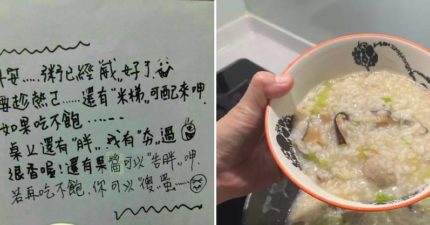 粥已經"威"好了
趁熱吃……還有"米梯"可配來呷
如果吃不飽……
桌上還有"胖"，我有"夯"過
很香喔！還有果醬可以"告胖"呷
若再吃不飽，你可以"傻"蛋……